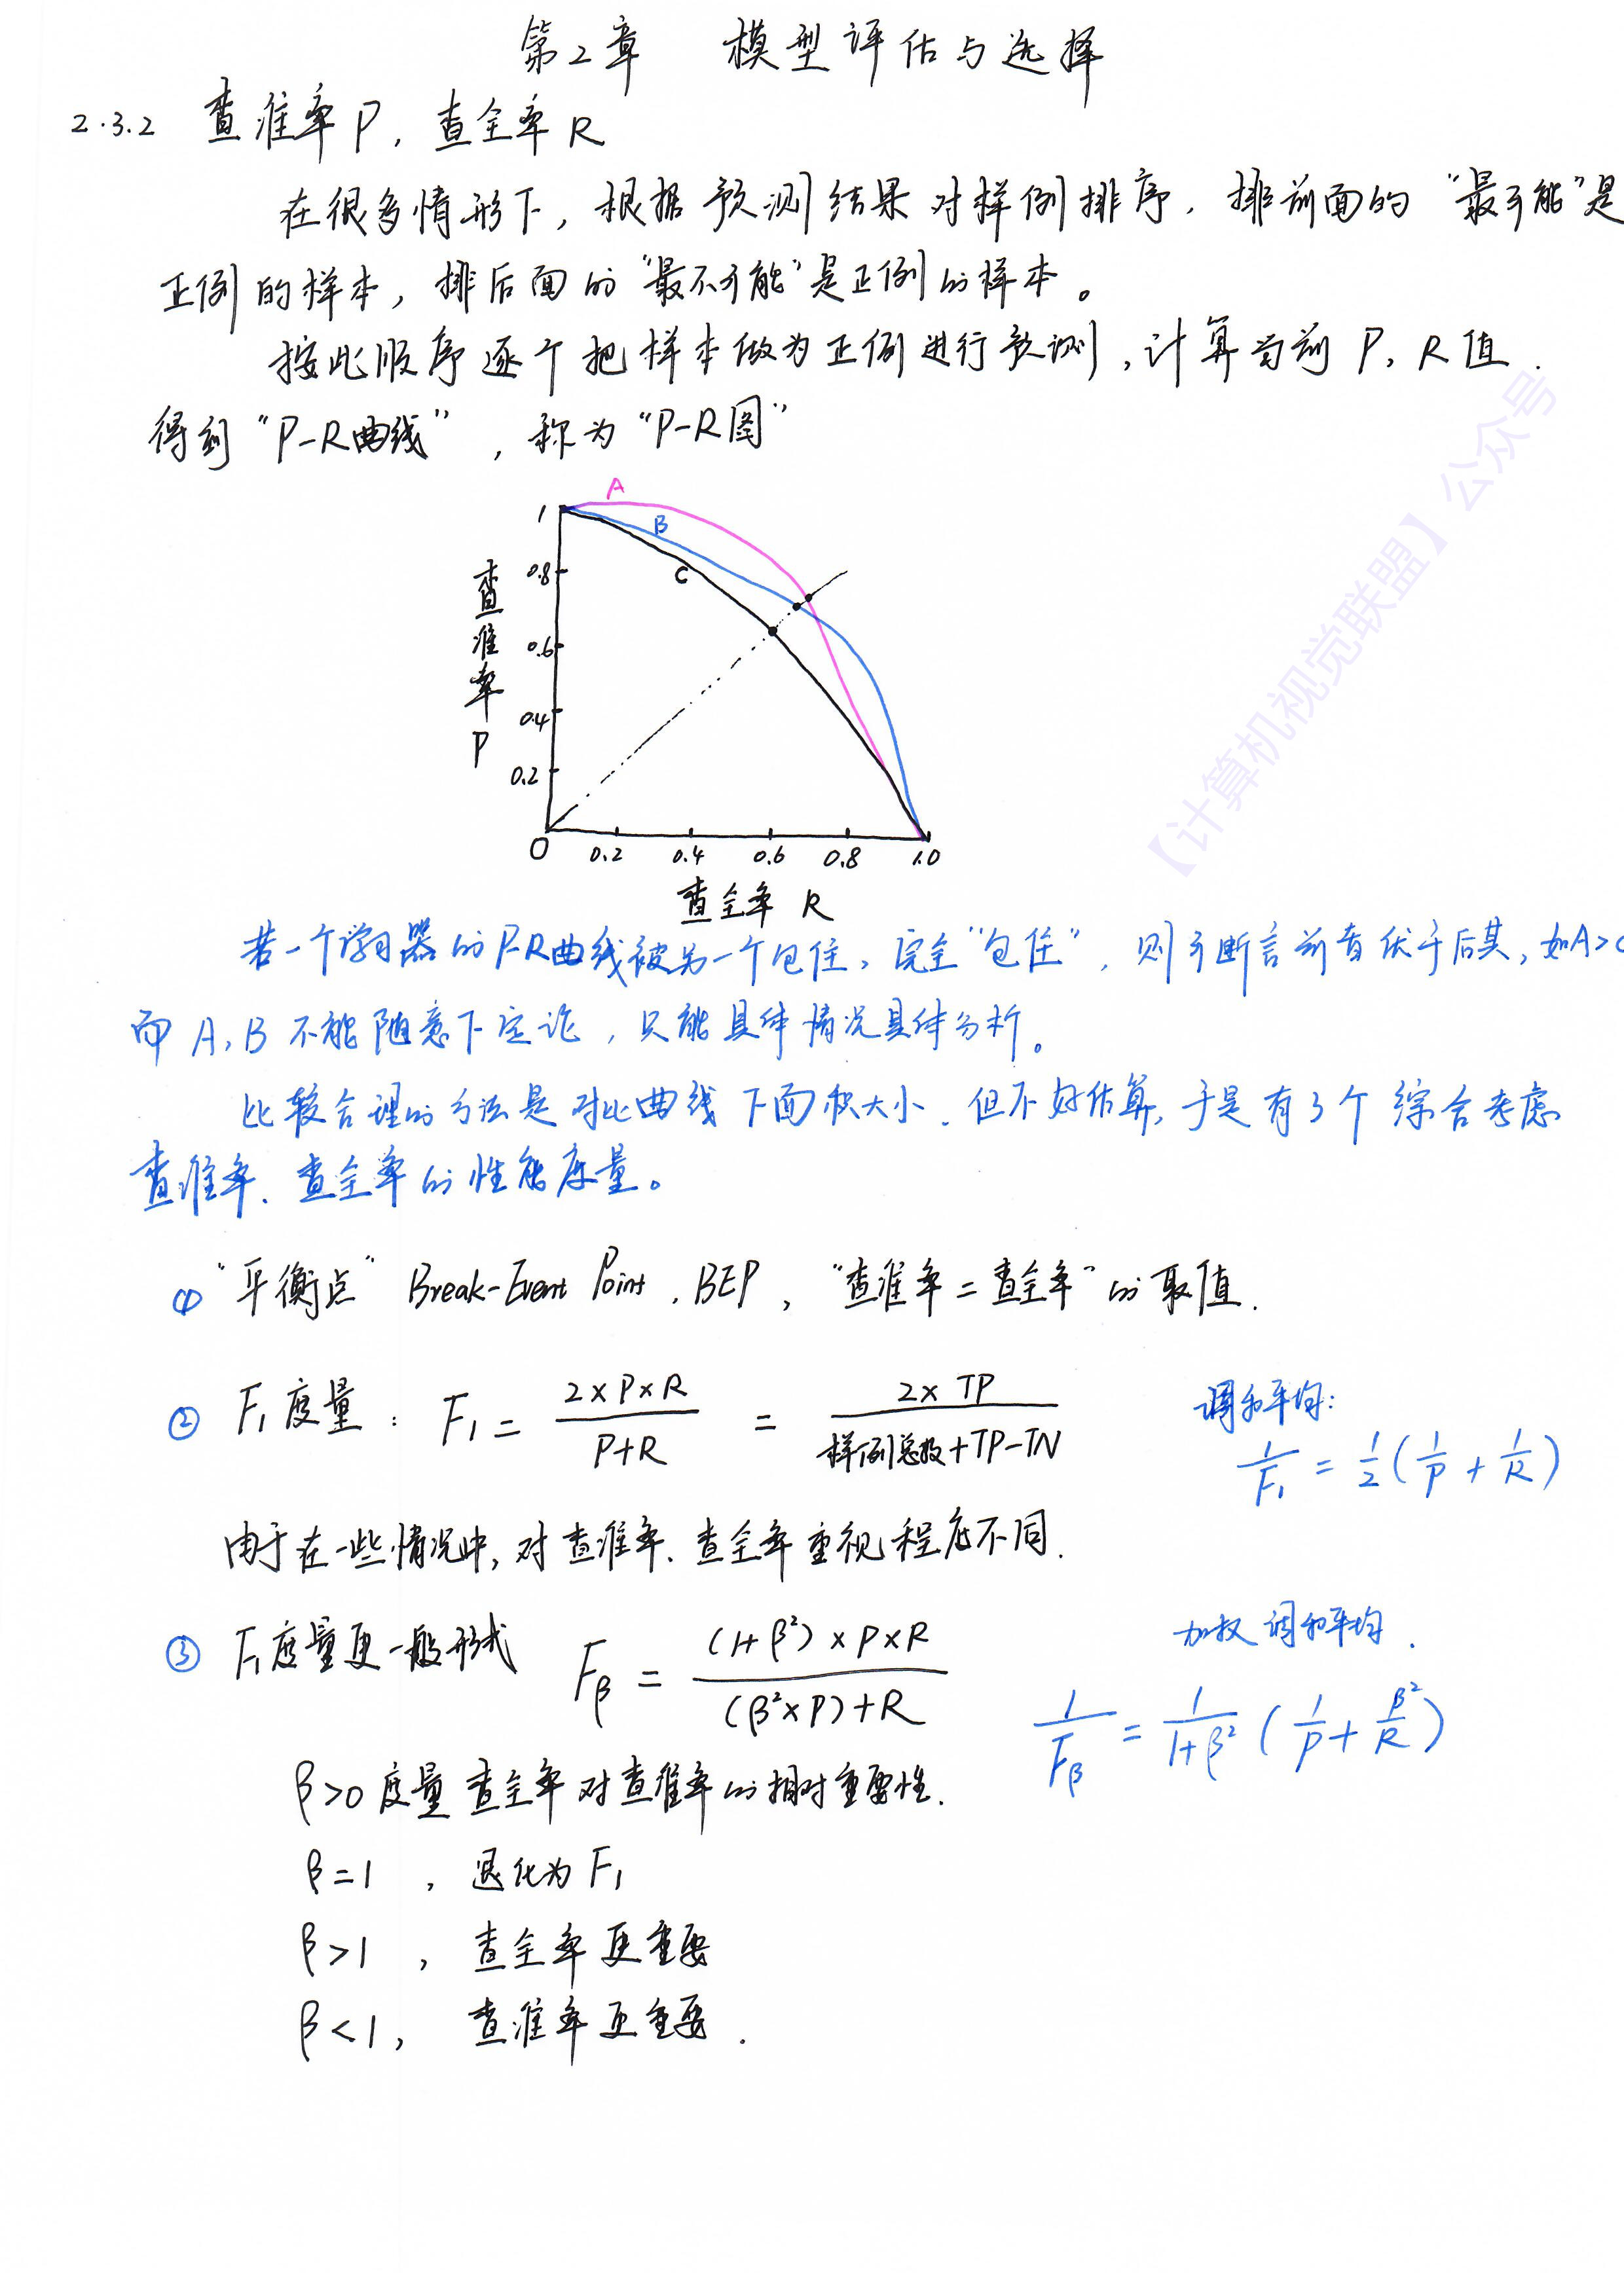 第2章 模型评估与选择
2.3.2 查准率P,查全率R
在很多情形下,根据预测结果对样例排序,排前面的“最可能”是
正例的样本,排后面的“最不可能”是正例的样本。
按此顺序逐个把样本做为正例进行预测,计算当前P,R值.
得到“P-R曲线”,称为“P-R图”
A
B
C
1
0.8
0.6
0.4
0.2
查准率P
0 0.2 0.4 0.6 0.8 1.0
查全率 R
【计算机视觉联盟】公众号
若一个学习器的P-R曲线被另一个包住,完全“包住”,则可断言前者优于后其,如A>C
而A,B不能随意下定论,只能具体情况具体分析。
比较合理的方法是对比曲线下面积大小.但不好估算,于是有3个综合考虑
查准率、查全率的性能度量。
① “平衡点” Break-Event Point,BEP,“查准率=查全率”的取值.
② F₁度量: F₁ = (2×P×R)/(P+R) = (2×TP)/(样例总数+TP-TN)
调和平均:
1/F₁ = 1/2(1/P + 1/R)
由于在一些情况中,对查准率、查全率重视程度不同.
③ F₁度量更一般形式 Fβ = ((1+β²)×P×R)/((β²×P)+R)
加权调和平均.
1/Fβ = 1/(1+β²)(1/P + β²/R)
β>0度量查全率对查准率的相对重要性.
β=1,退化为F₁
β>1,查全率更重要
β<1,查准率更重要.